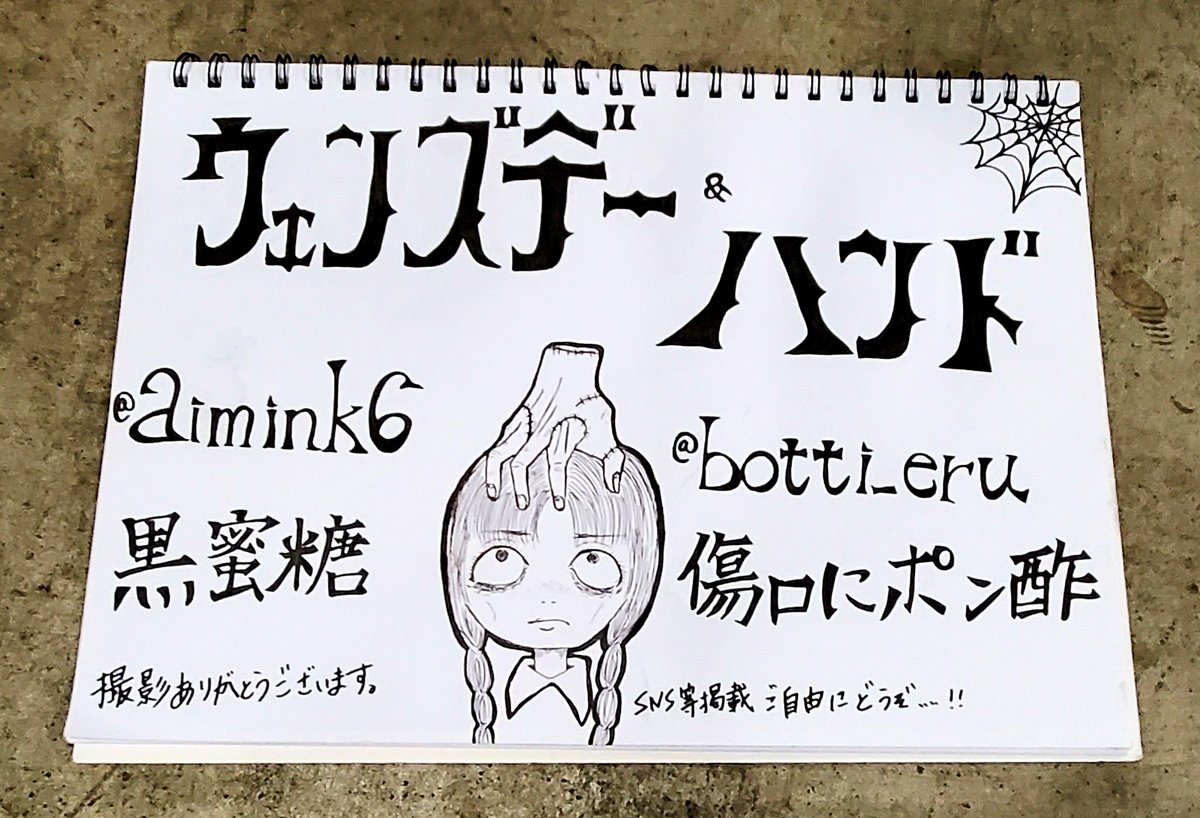 ウェンズデー &
ハンド
@aimink6
黒蜜糖
@botti_eru
傷口にポン酢
撮影ありがとうございます。
SNS等掲載ご自由にどうぞ…!!